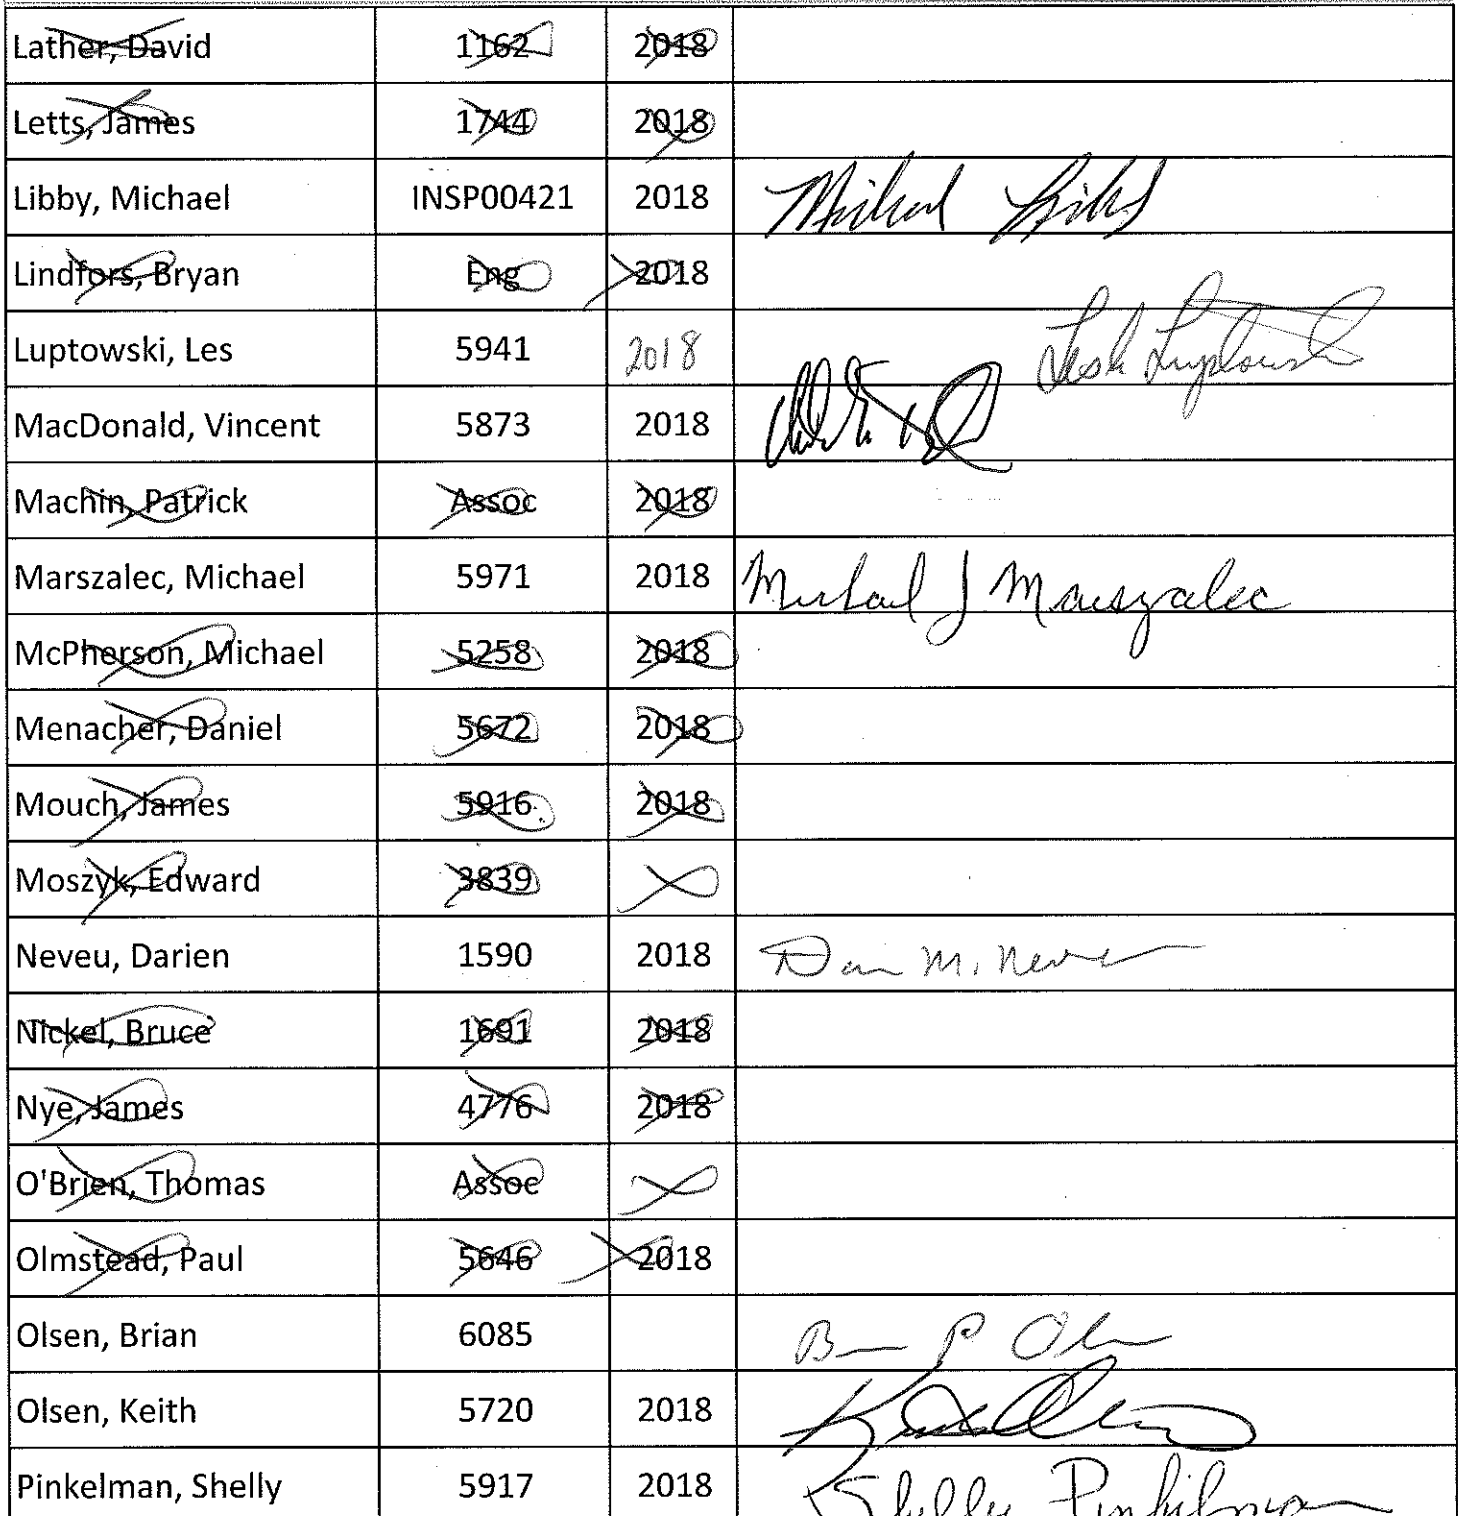 Lather, David 1162 2018
Letts, James 1744 2018
Libby, Michael INSP00421 2018 Michael Libby
Lindfors, Bryan Eng 2018
Luptowski, Les 5941 2018 Luptowski
MacDonald, Vincent 5873 2018
Machin, Patrick Assoc 2018
Marszalec, Michael 5971 2018 Michael J Marszalec
McPherson, Michael 5258 2018
Menacher, Daniel 5672 2018
Mouch, James 5916 2018
Moszyk, Edward 3839
Neveu, Darien 1590 2018 M. Neveu
Nickel, Bruce 1691 2018
Nye, James 4776 2018
O'Brien, Thomas Assoc
Olmstead, Paul 5646 2018
Olsen, Brian 6085 B P Olsen
Olsen, Keith 5720 2018 Keith Olsen
Pinkelman, Shelly 5917 2018 Shelly Pinkelman